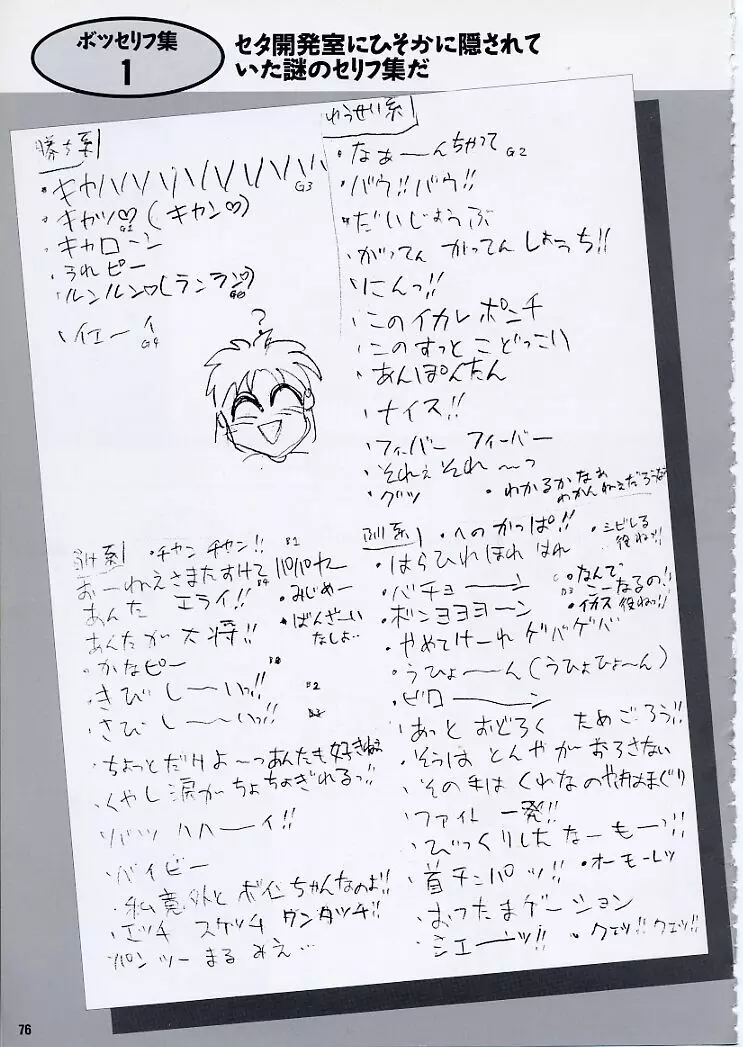 ボツセリフ集
1
セタ開発室にひそかに隠されて
いた謎のセリフ集だ
勝ち系
・キャハハハハハハハハ G3
・キャッ♡(キャン♡)
・キャローン
・うれピー
・ルンルン♡(ランラン♡)
・イエーイ G4
?
ゆうせい系
・なぁーんちゃって G2
・バウ!!バウ!!
・だいじょうぶ
・がってん がってん しょうち!!
・にんっ!!
・このイカレ ポンチ
・このすっとこどっこい
・あんぽんたん
・ナイス!!
・フィーバー フィーバー
・それぇ それ〜っ
・グッ
・わかるかなぁ
わかんねぇだろうなぁ
負け系
・チャン チャン!! B1
おーねえさまたすけて B4
あんた エライ!!
・みじめー
あんたが大将!!
・ばんざーい
なしよ…
・かなピー
・きびしーいっ!!
・さびしーいっ!! B2
・ちょっとだけよ〜っあんたも好きねぇ
・くやし涙がちょちょぎれるっ!!
・バイビー
・私意外とボインちゃんなのよ!!
・エッチ スケッチ ワンタッチ!!
パンツーまるみえ…
・へのかっぱ!!
・シビレる
役ねっ!!
・はらひれほれ はれ
・バチョーーン
・なんで
こーなるの!!
・ボンヨヨヨーン
・イカス役ねっ!!
・やめてけーれ ゲバゲバ
・うひょーーん(うひょひょ〜ん)
・ビローーーン
・あっと おどろく ためごろう!!
・そうは とんやが おろさない
・その手は くわなの やきはまぐり
・ファイト 一発!!
・びっくりしたなーもーっ!!
・首チンパッ!!
・オーモーレツ
・おったまゲーション
・シェーーッ!!
・クエッ!!クエッ!!
76